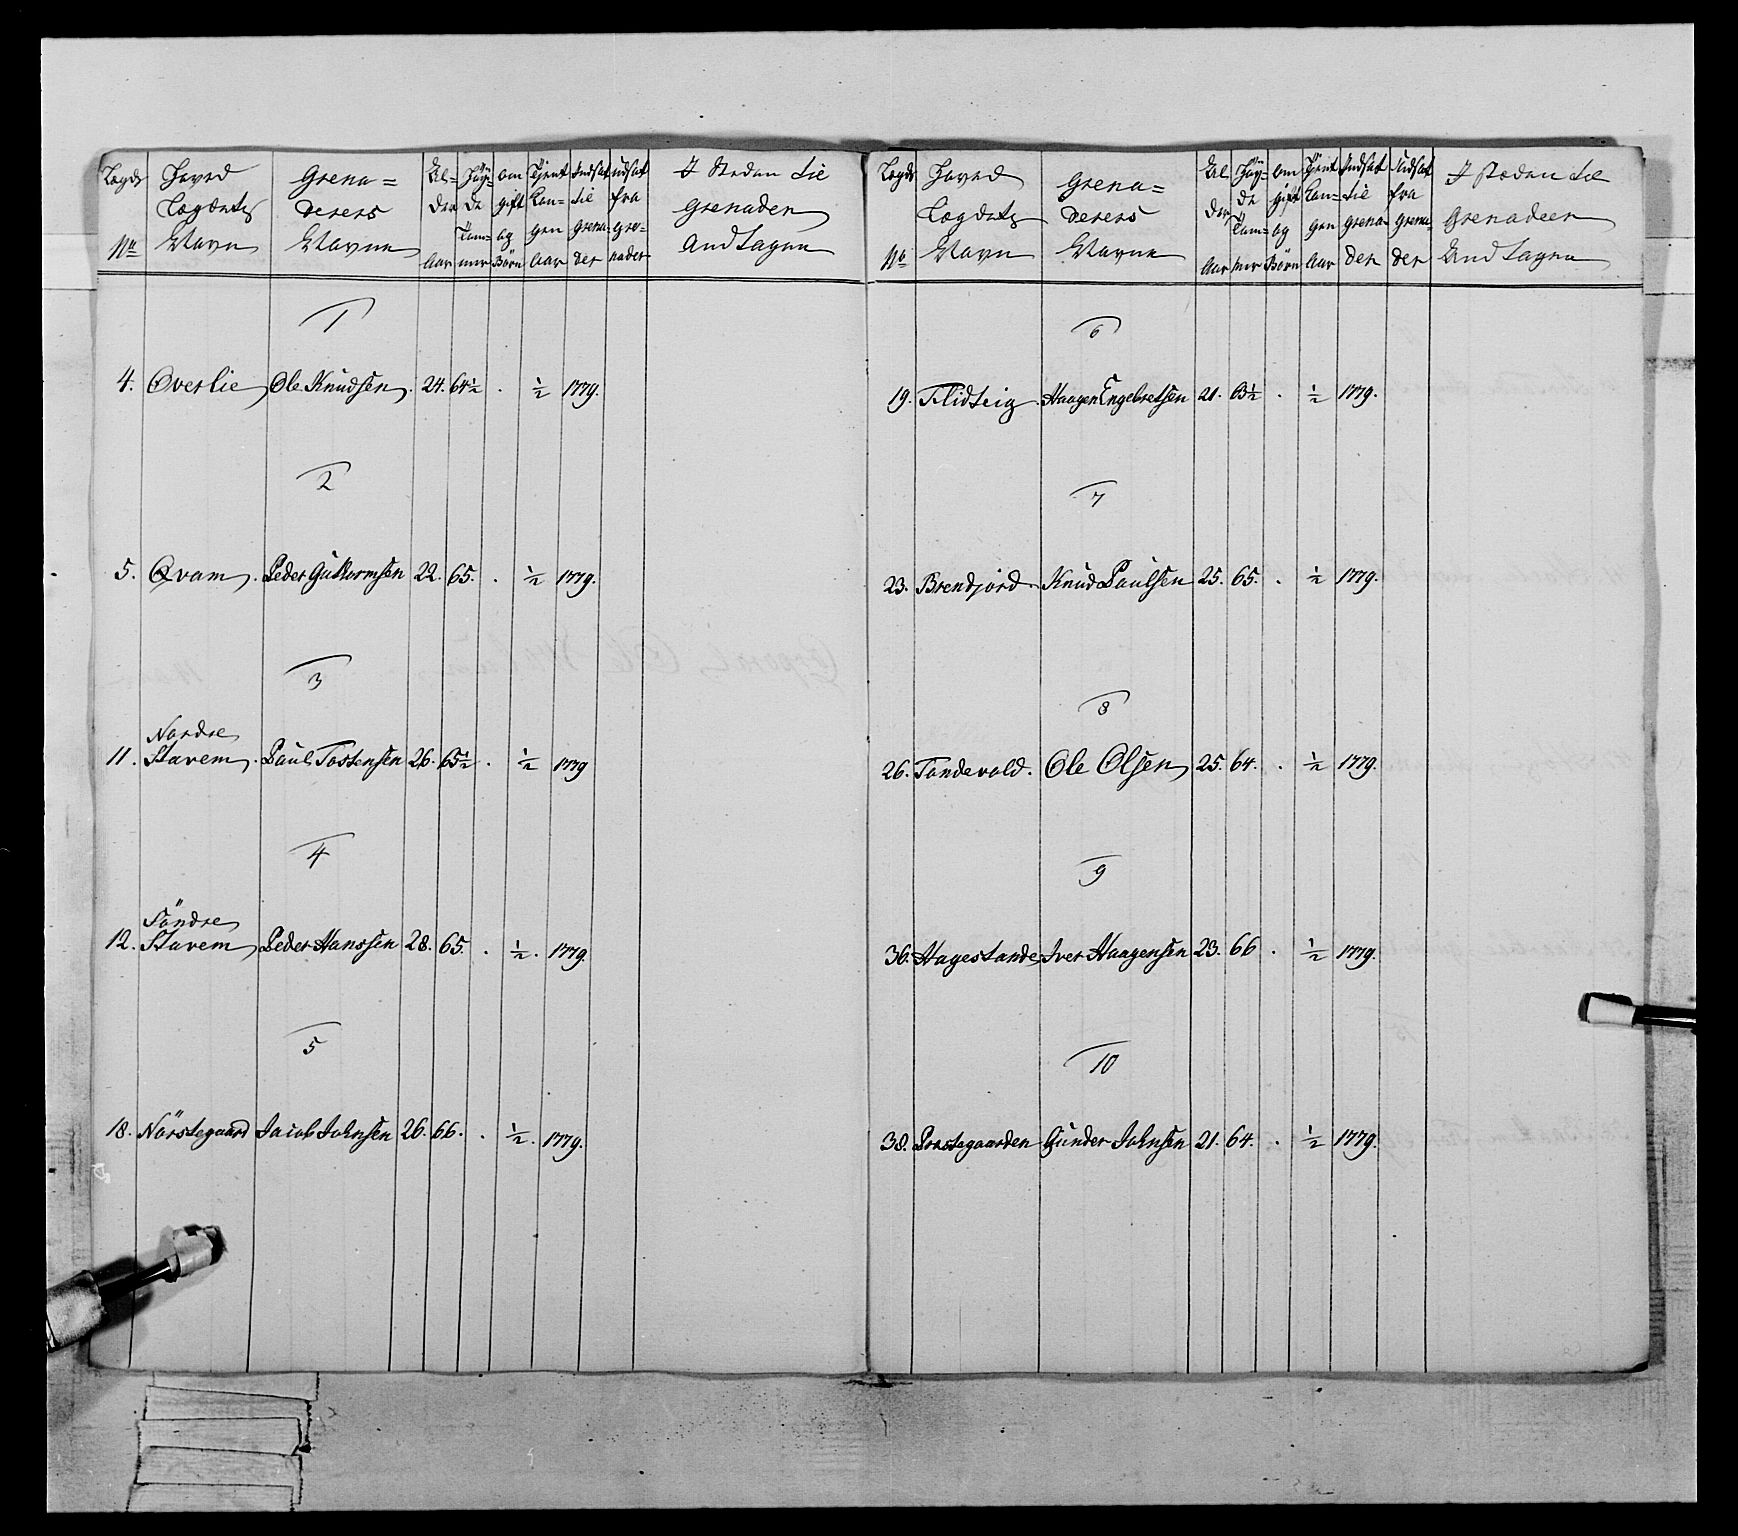 Lægds No
Hoved Lægdets Navn
Grena= derers Navne
Al= der Aar
Høy= de Tom= mer
om gift og Börn
Tjent Lan= gen Aar
Indsat til Grena= der
Udsat fra Gre= nader
I Steden til Grenadeer Antagen
1
4. Øverlie Ole Knudsen. 24. 64½ . ½ 1779.
2
5. Qvam. Peder Guttormsen 22. 65. . ½ 1779.
3
11. Nordre Stavem. Paul Tostensen 26. 65½ . ½ 1779
4
12. Söndre Stavem Peder Hanssen 28. 65. . ½. 1779.
5
18. Nörstegaard Jacob Johnsen 26. 66. . ½. 1779.
Lægds No
Hoved Lægdets Navn
Grena= derers Navne
Al der Aar
Høy= de Tom= mer
om gift og Börn
Tjent Lan= gen Aar
Indsat til Grena= der
Udsat fra Grena= der
I Steden til Grenadeer Antagen
6
19. Flidteig Haagen Engebretsen 21. 63½ . ½ 1779.
7
23. Brendjord. Knud Paulsen 25. 65. . ½ 1779.
8
26. Tandevold. Ole Olsen 25. 64. . ½ 1779.
9
36. Hagestande Iver Haagensen 23. 66 . ½ 1779.
10
38. Præstegaarden Gunder Johnsen 21. 64. . ½ 1779.